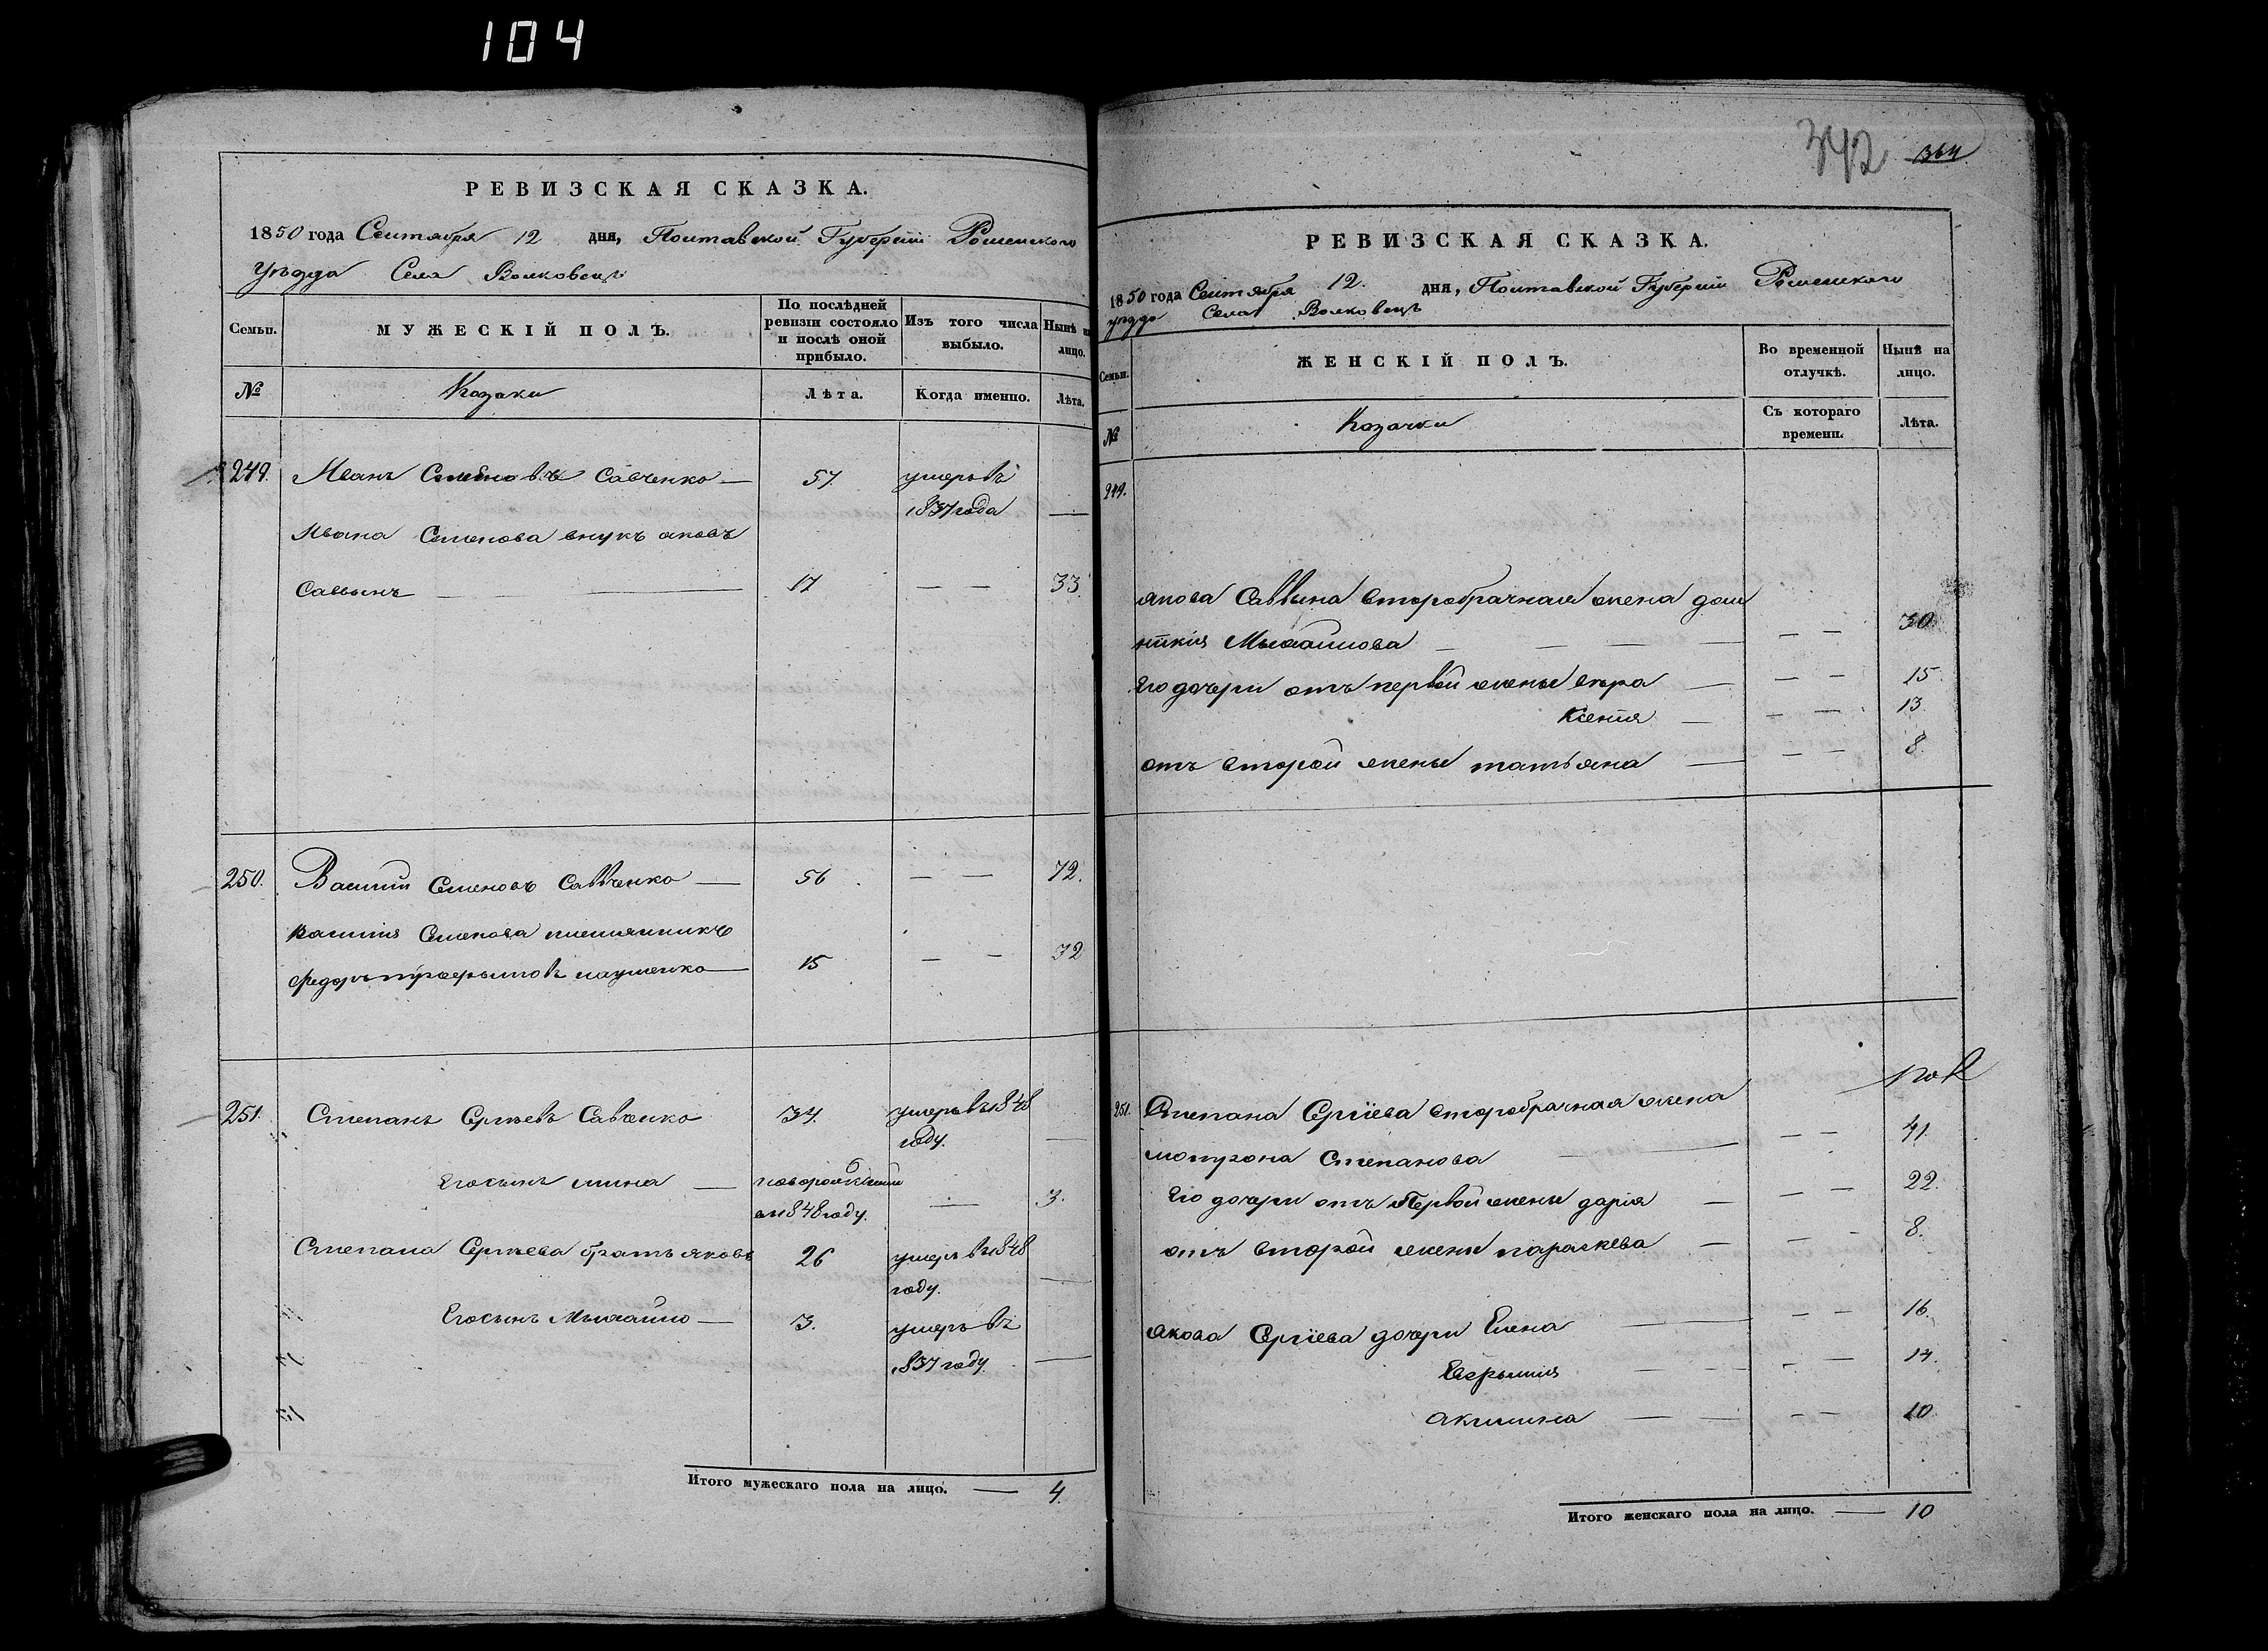 104
РЕВИЗСКАЯ СКАЗКА.
1850 года Сентября 12 дня, Полтавской Губерніи Роменского
Уѣзда Села Волковецъ
Семьи. МУЖЕСКІЙ ПОЛЪ. По послѣдней ревизіи состояло и послѣ оной прибыло. Изъ того числа выбыло. Нынѣ на лицо.
№ Козаки Лѣта. Когда именно. Лѣта.
249. Иванъ Семеновъ Савченко — 57. умеръ въ
1837 года —
Ивана Семенова внукъ яковъ
Саввынъ — 17 — — 33.
250. Василій Семеновъ Савченко — 56. — — 72.
василія Семенова племянникъ
федоръ лаушенко — 15 — — 32
251. Степанъ Сергѣевъ Савченко 34. умеръ въ 1848
году. —
Егосынъ мина — новорожденный
в 1848 году. — 3.
Степана Сергѣева братъ яковъ 26 умеръ в 1848
году. —
Егосынъ Михайло — 3. умеръ въ
1837 году. —
Итого мужескаго пола на лицо. — 4.
342 364
РЕВИЗСКАЯ СКАЗКА.
1850 года Сентября 12. дня, Полтавской Губерніи Роменского
уѣзда Села Волковецъ
Семьи. ЖЕНСКІЙ ПОЛЪ. Во временной отлучкѣ. Нынѣ на лицо.
№ Козачки Съ котораго времени. Лѣта.
249.
якова Саввына второбрачная жена дом
никія Михайлова — — — — — 30.
Его дочери отъ первой жены вѣра — — — 15.
Ксенія — — — 13.
отъ второй жены татьяна — — — 8.
251. Степана Сергіева второбрачная жена
мотрона Степанова — — — 41.
Его дочери отъ Первой жены дарія — — — 22.
отъ второй жены параскева — — — 8.
якова Сергіева дочери Елена — — — 16.
Евфимія — — — — 14.
акилина — — — — 10.
Итого женскаго пола на лицо. — 10